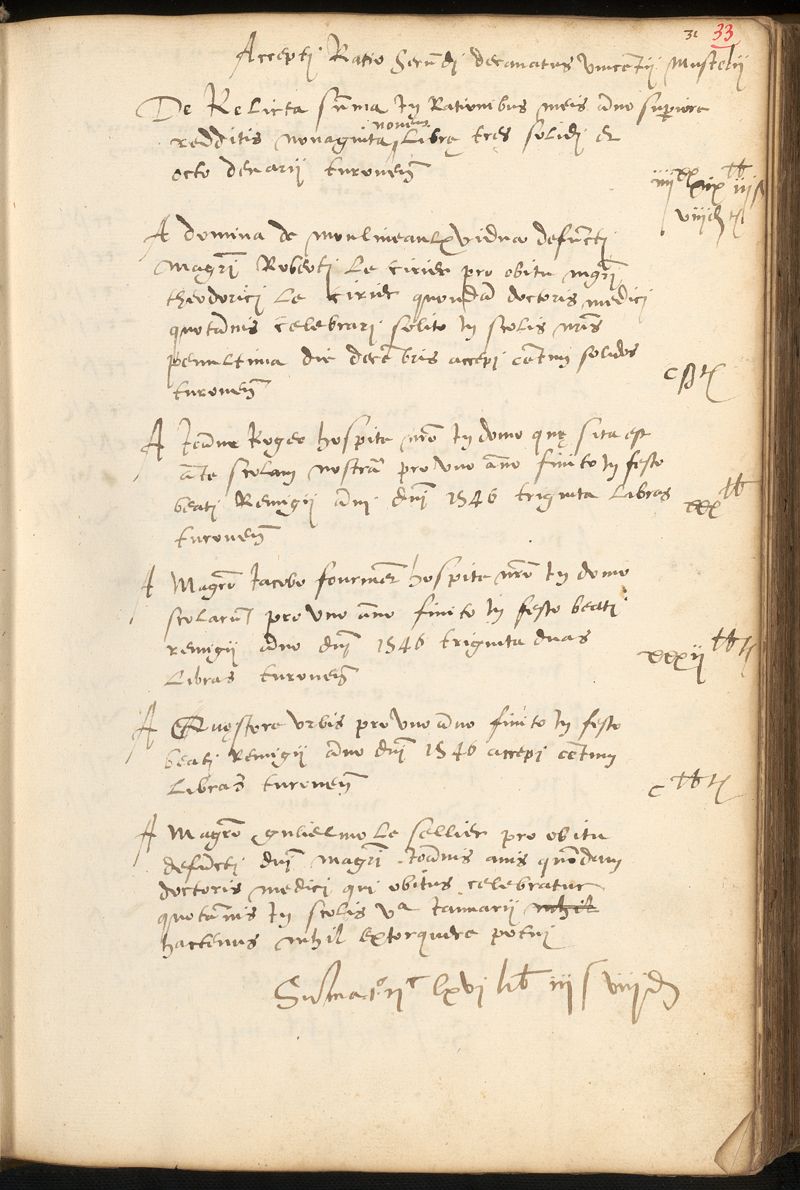 31 33
Accepti Ratio secundi decanatus vincentii Mustelii
De Relicta suma In Rationibus meis año superiore
redditis nonaginta novem Librę tres solidi et
octo denarii turoneñ
iiij xx xix lb iij s
viij d t
A domina de moulineaulx vidua defuncti
magri Roberti Le cirier pro obitu mgri
theodorici Le cirier quondã doctoris medici
quotañis celebrari solito In scolis nris
penultima die decẽbris accepi cẽtum solidos
turoneñ
c s t
A Joãne Roger hospite nro In domo quę sita est
ante scolam nostrã pro uno año finito In festo
beati Remigij ani dñi 1546 triginta Libras
turoneñ
xxx lb
A Magro Jacobo fourmer hospite nro In domo
scolarum pro uno año finito In festo beati
remigij año dñi 1546 triginta duas
Libras turoneñ
xxxij lb t
A Quęstore urbis pro uno año finito In festo
beati Remigij año dñi 1546 accepi cẽtum
Libras turoneñ
c lb t
A Magro gulielmo Le sellier pro obitu
defuncti dñi magri Joãnis avis quondam
doctoris medici qui obitus celebratur
quotañis In scolis va Januarii nihil
hactenus nihil extorquere potui
Suma to ijc lxvj lib iij s viij d